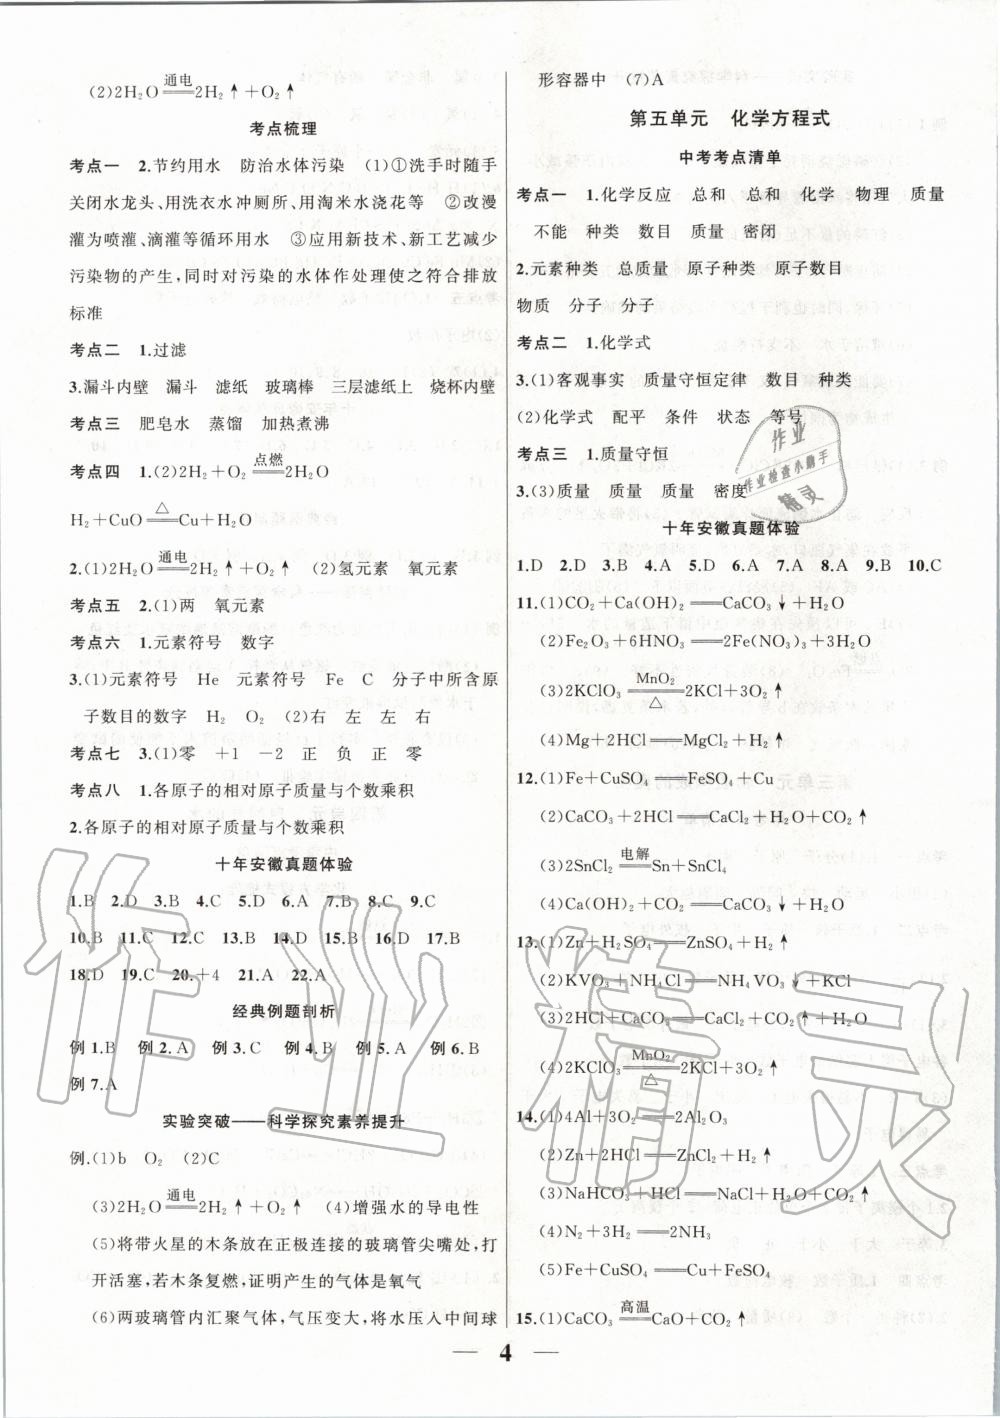 (2)2H₂O =通电= 2H₂↑+O₂↑
考点梳理
考点一 2.节约用水 防治水体污染 (1)①洗手时随手
关闭水龙头、用洗衣水冲厕所、用淘米水浇花等 ②改漫
灌为喷灌、滴灌等循环用水 ③应用新技术、新工艺减少
污染物的产生,同时对污染的水体作处理使之符合排放
标准
考点二 1.过滤
3.漏斗内壁 漏斗 滤纸 玻璃棒 三层滤纸上 烧杯内壁
考点三 肥皂水 蒸馏 加热煮沸
考点四 1.(2)2H₂+O₂ =点燃= 2H₂O
H₂+CuO =△= Cu+H₂O
2.(1)2H₂O =通电= 2H₂↑+O₂↑ (2)氢元素 氧元素
考点五 2.(1)两 氧元素
考点六 1.元素符号 数字
3.(1)元素符号 He 元素符号 Fe C 分子中所含原
子数目的数字 H₂ O₂ (2)右 左 左 右
考点七 3.(1)零 +1 -2 正 负 正 零
考点八 1.各原子的相对原子质量与个数乘积
2.各原子的相对原子质量与个数乘积
十年安徽真题体验
1.B 2.D 3.B 4.C 5.D 6.A 7.B 8.C 9.C
10.B 11.C 12.C 13.B 14.D 15.B 16.D 17.B
18.D 19.C 20.+4 21.A 22.A
经典例题剖析
例1.B 例2.A 例3.C 例4.B 例5.A 例6.B
例7.A
实验突破——科学探究素养提升
例.(1)b O₂ (2)C
(3)2H₂O =通电= 2H₂↑+O₂↑ (4)增强水的导电性
(5)将带火星的木条放在正极连接的玻璃管尖嘴处,打
开活塞,若木条复燃,证明产生的气体是氧气
(6)两玻璃管内汇聚气体,气压变大,将水压入中间球
形容器中 (7)A
第五单元 化学方程式
中考考点清单
考点一 1.化学反应 总和 总和 化学 物理 质量
不能 种类 数目 质量 密闭
2.元素种类 总质量 原子种类 原子数目
物质 分子 分子
考点二 1.化学式
3.(1)客观事实 质量守恒定律 数目 种类
(2)化学式 配平 条件 状态 等号
考点三 1.质量守恒
3.(3)质量 质量 质量 密度
十年安徽真题体验
1.D 2.D 3.B 4.A 5.D 6.A 7.A 8.A 9.B 10.C
11.(1)CO₂+Ca(OH)₂ == CaCO₃↓+H₂O
(2)Fe₂O₃+6HNO₃ == 2Fe(NO₃)₃+3H₂O
(3)2KClO₃ =MnO₂/△= 2KCl+3O₂↑
(4)Mg+2HCl == MgCl₂+H₂↑
12.(1)Fe+CuSO₄ == FeSO₄+Cu
(2)CaCO₃+2HCl == CaCl₂+H₂O+CO₂↑
(3)2SnCl₂ =电解= Sn+SnCl₄
(4)Ca(OH)₂+CO₂ == CaCO₃↓+H₂O
13.(1)Zn+H₂SO₄ == ZnSO₄+H₂↑
(2)KVO₃+NH₄Cl == NH₄VO₃↓+KCl
(3)2HCl+CaCO₃ == CaCl₂+CO₂↑+H₂O
(4)2KClO₃ =MnO₂/△= 2KCl+3O₂↑
14.(1)4Al+3O₂ == 2Al₂O₃
(2)Zn+2HCl == ZnCl₂+H₂↑
(3)NaHCO₃+HCl == NaCl+H₂O+CO₂↑
(4)N₂+3H₂ == 2NH₃
(5)Fe+CuSO₄ == Cu+FeSO₄
15.(1)CaCO₃ =高温= CaO+CO₂↑
4
作业
作业检查小助手
精灵
作业精灵